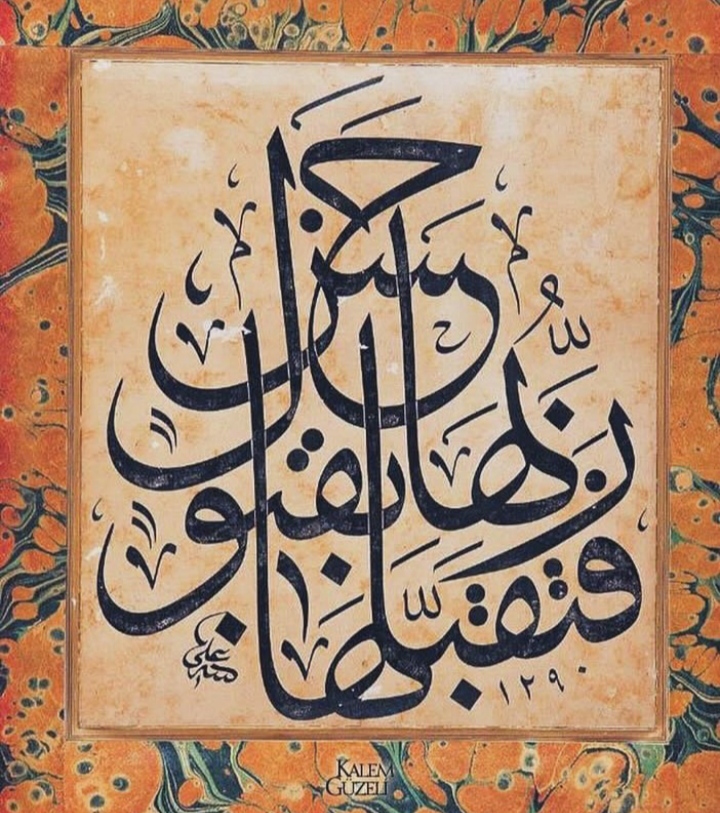 فَتَقَبَّلَهَا رَبُّهَا بِقَبُولٍ حَسَنٍ
علي
١٢٩٠
KALEM
GÜZELİ